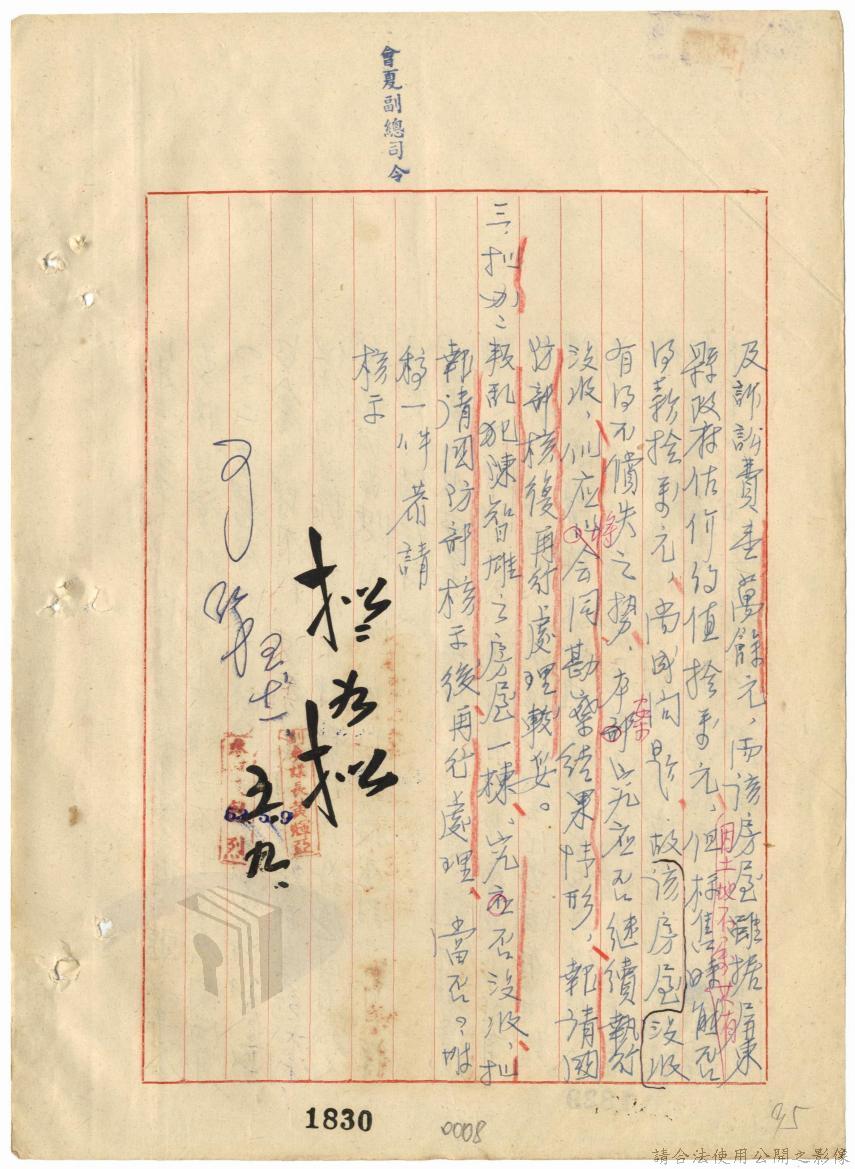 會夏副總司令
及訴訟費壹萬餘元，而該房屋雖據屏東
縣政府估价約值捨萬元，但標售時能否
因土地不
得款捨萬元，尚成問題，故該房屋沒收
有得不償失之勢，本案究應否繼續執行
沒收，仍應將會同勘察結果情形，報請國
防部核復再行處理較妥。
三、擬办：叛乱犯陳智雄之房屋一棟，究應否沒收，擬
報請國防部核示後再行處理，當否？附
稿一件恭請
核示
擬如擬
五.九.
副參謀長黃輝亞
烈
1830
0008
95
請合法使用公開之影像